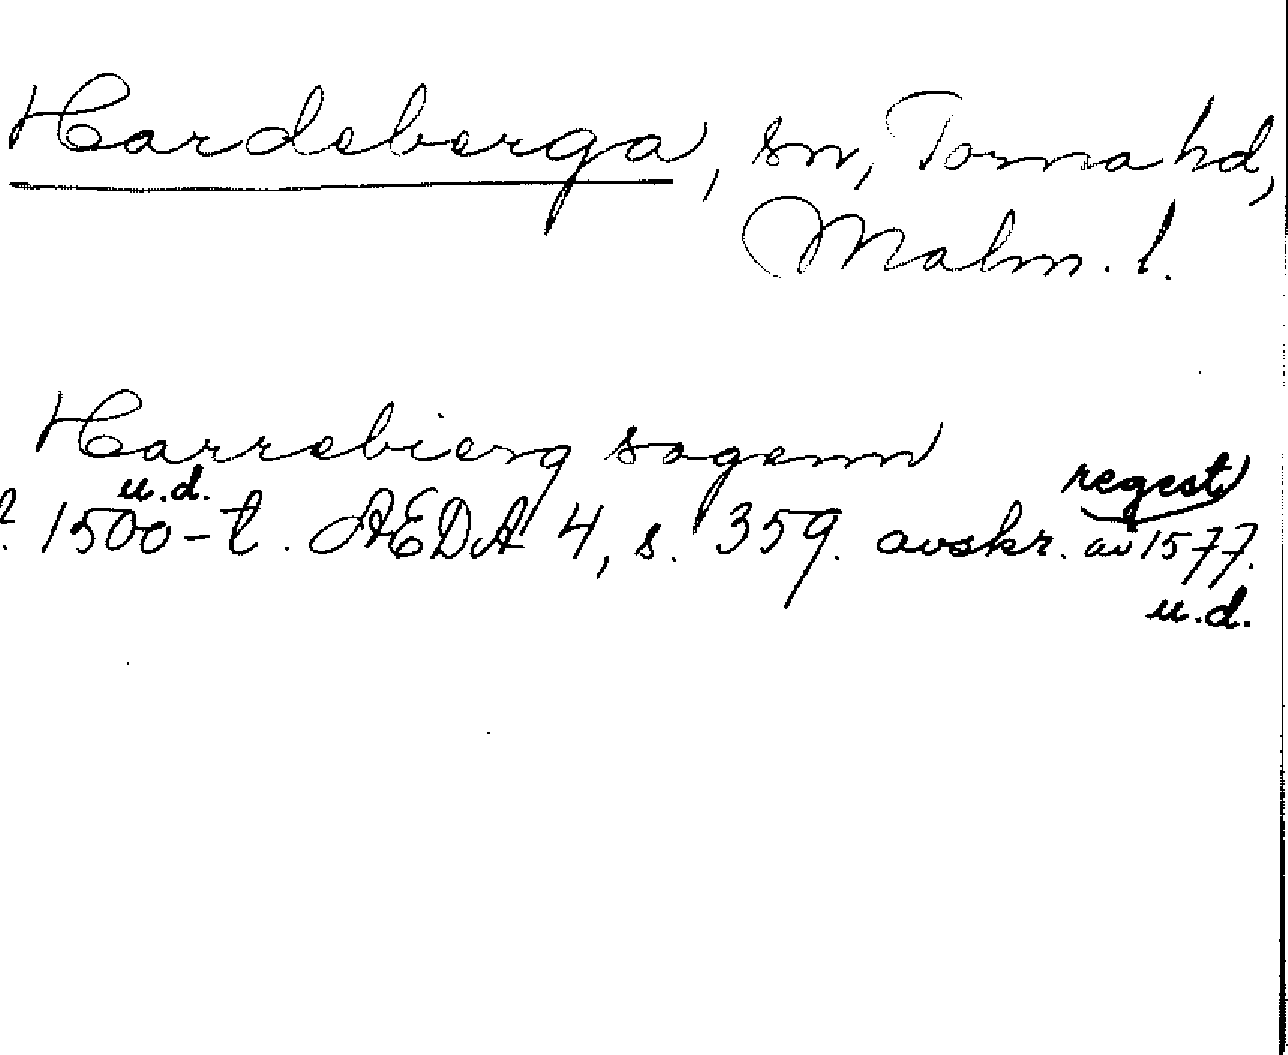 Hardeberga, sn, Torna hd,
Malm. l.
Harrebierg sogenn
u.d.
regest
? 1500-t. AEDA 4, s. 359. avskr. av 1577.
u.d.